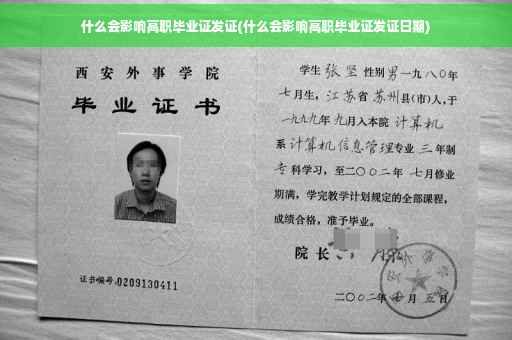 什么会影响高职毕业证发证(什么会影响高职毕业证发证日期)
西安外事学院
毕业证书
证书编号:0209130411
学生 张坚 性别 男 一九八〇年
七月生, 江苏省 苏州县(市)人,于
一九九九年 九月入本院 计算机
系 计算机信息管理专业 三 年制
专 科学习, 至二〇〇二年 七月修业
期满, 学完教学计划规定的全部课程,
成绩合格, 准予毕业。
院长
二〇〇二年 月 五日